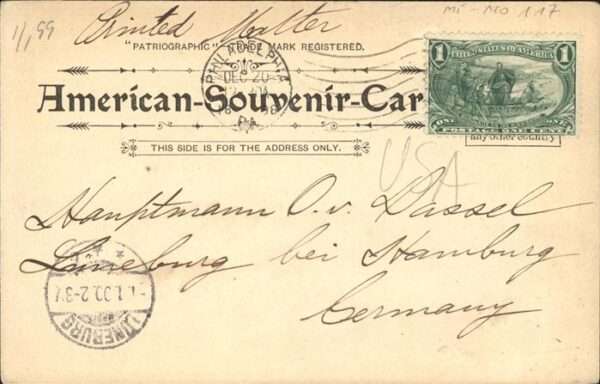 1/1,99
Printed Matter
MI-NO 117
"PATRIOGRAPHIC" TRADE MARK REGISTERED.
PHILADELPHIA
DEC 20
PA
1 UNITED STATES OF AMERICA 1
ONE ONE
POSTAGE ONE CENT
American-Souvenir-Car
any other country
THIS SIDE IS FOR THE ADDRESS ONLY.
USA
Hauptmann O. v. Dassel
Lüneburg bei Hamburg
Germany
LÜNEBURG